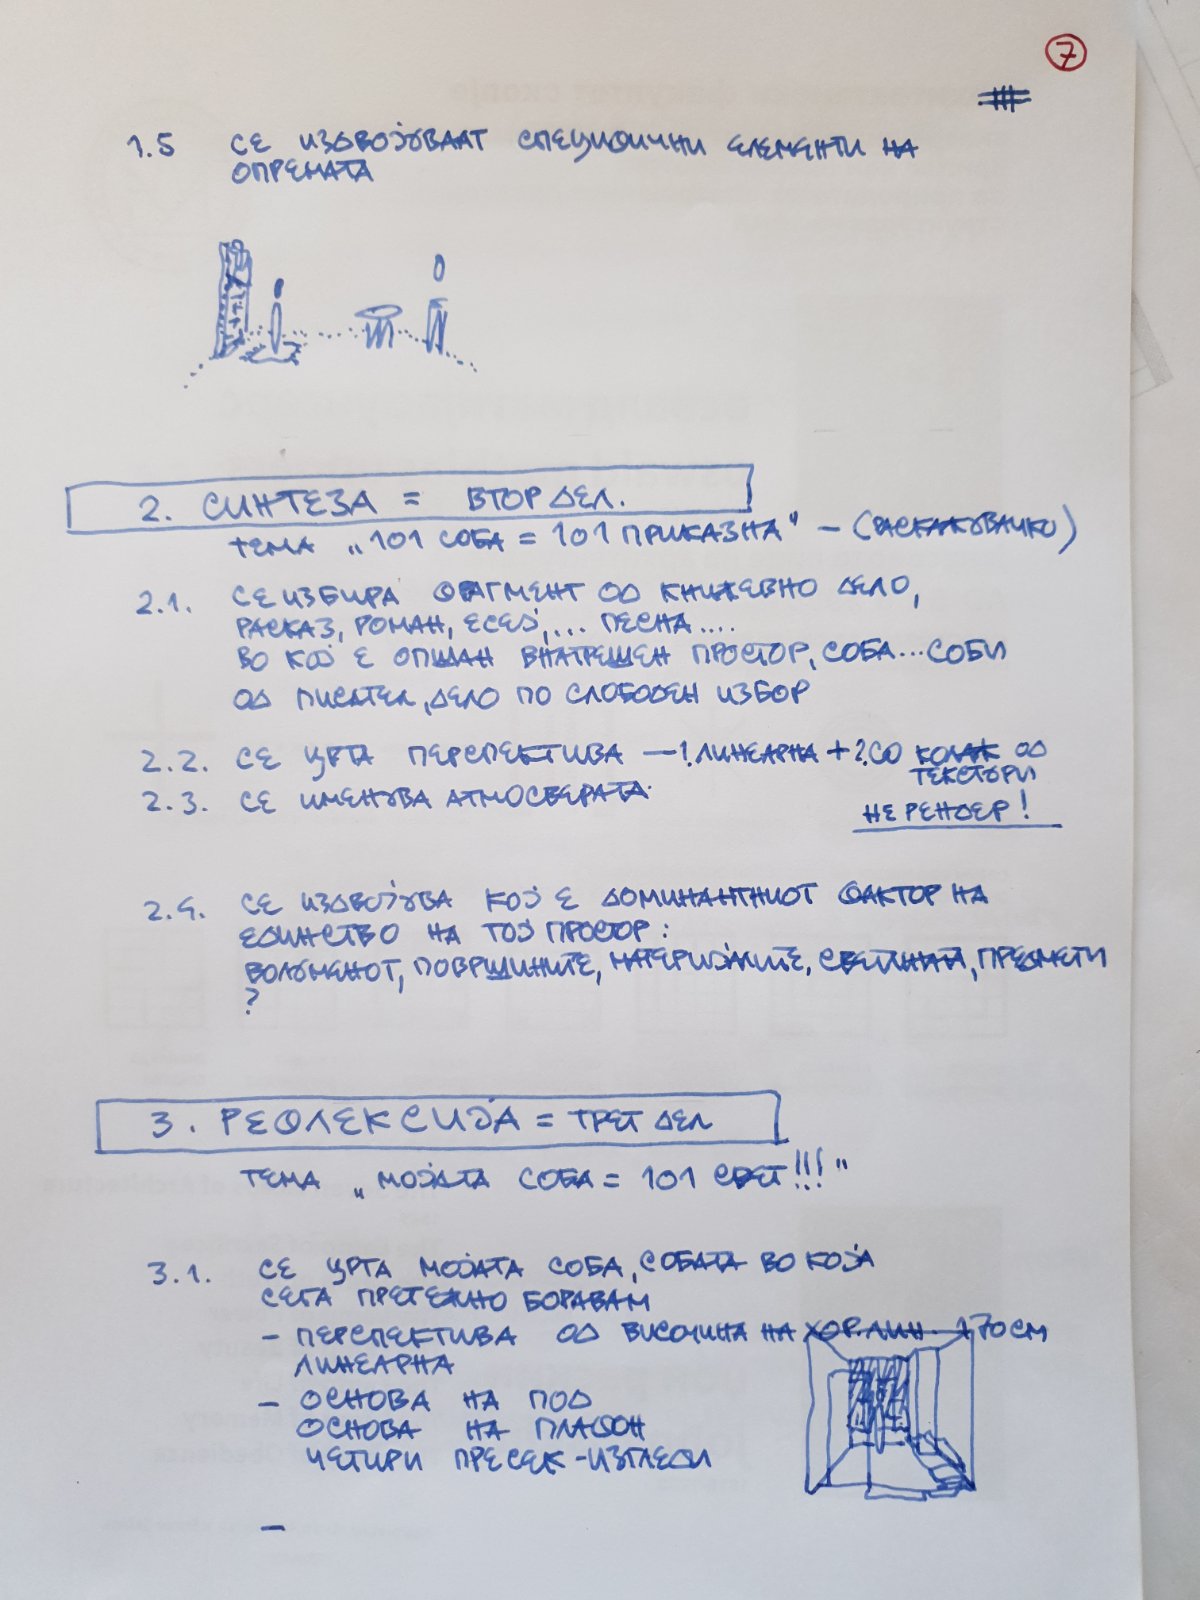 7
1.5 СЕ ИЗДВОЈУВААТ СПЕЦИФИЧНИ ЕЛЕМЕНТИ НА
ОПРЕМАТА
2. СИНТЕЗА = ВТОР ДЕЛ.
ТЕМА „101 СОБА = 101 ПРИКАЗНА" – (РАСКАЖУВАЧКО)
2.1. СЕ ИЗБИРА ФРАГМЕНТ ОД КНИЖЕВНО ДЕЛО,
РАСКАЗ, РОМАН, ЕСЕЈ,... ПЕСНА....
ВО КОЈ Е ОПИШАН ВНАТРЕШЕН ПРОСТОР, СОБА...СОБИ
ОД ПИСАТЕЛ, ДЕЛО ПО СЛОБОДЕН ИЗБОР
2.2. СЕ ЦРТА ПЕРСПЕКТИВА – 1. ЛИНЕАРНА + 2. СО КОЛАЖ ОД
ТЕКСТУРИ
2.3. СЕ ИМЕНУВА АТМОСФЕРАТА.
НЕ РЕНДЕР!
2.4. СЕ ИЗДВОЈУВА КОЈ Е ДОМИНАНТНИОТ ФАКТОР НА
ЕДИНСТВО НА ТОЈ ПРОСТОР:
ВОЛУМЕНОТ, ПОВРШИНИТЕ, МАТЕРИЈАЛИТЕ, ПРЕДМЕТИ
?
3. РЕФЛЕКСИЈА = ТРЕТ ДЕЛ
ТЕМА „МОЈАТА СОБА = 101 СВЕТ!!!"
3.1. СЕ ЦРТА МОЈАТА СОБА, СОБАТА ВО КОЈА
СЕГА ПРЕТЕЖНО БОРАВАМ
– ПЕРСПЕКТИВА ОД ВИСОЧИНА НА ХОР. ЛИН. 170 CM
ЛИНЕАРНА
– ОСНОВА НА ПОД
ОСНОВА НА ПЛАФОН
ЧЕТИРИ ПРЕСЕК-ИЗГЛЕДИ
–